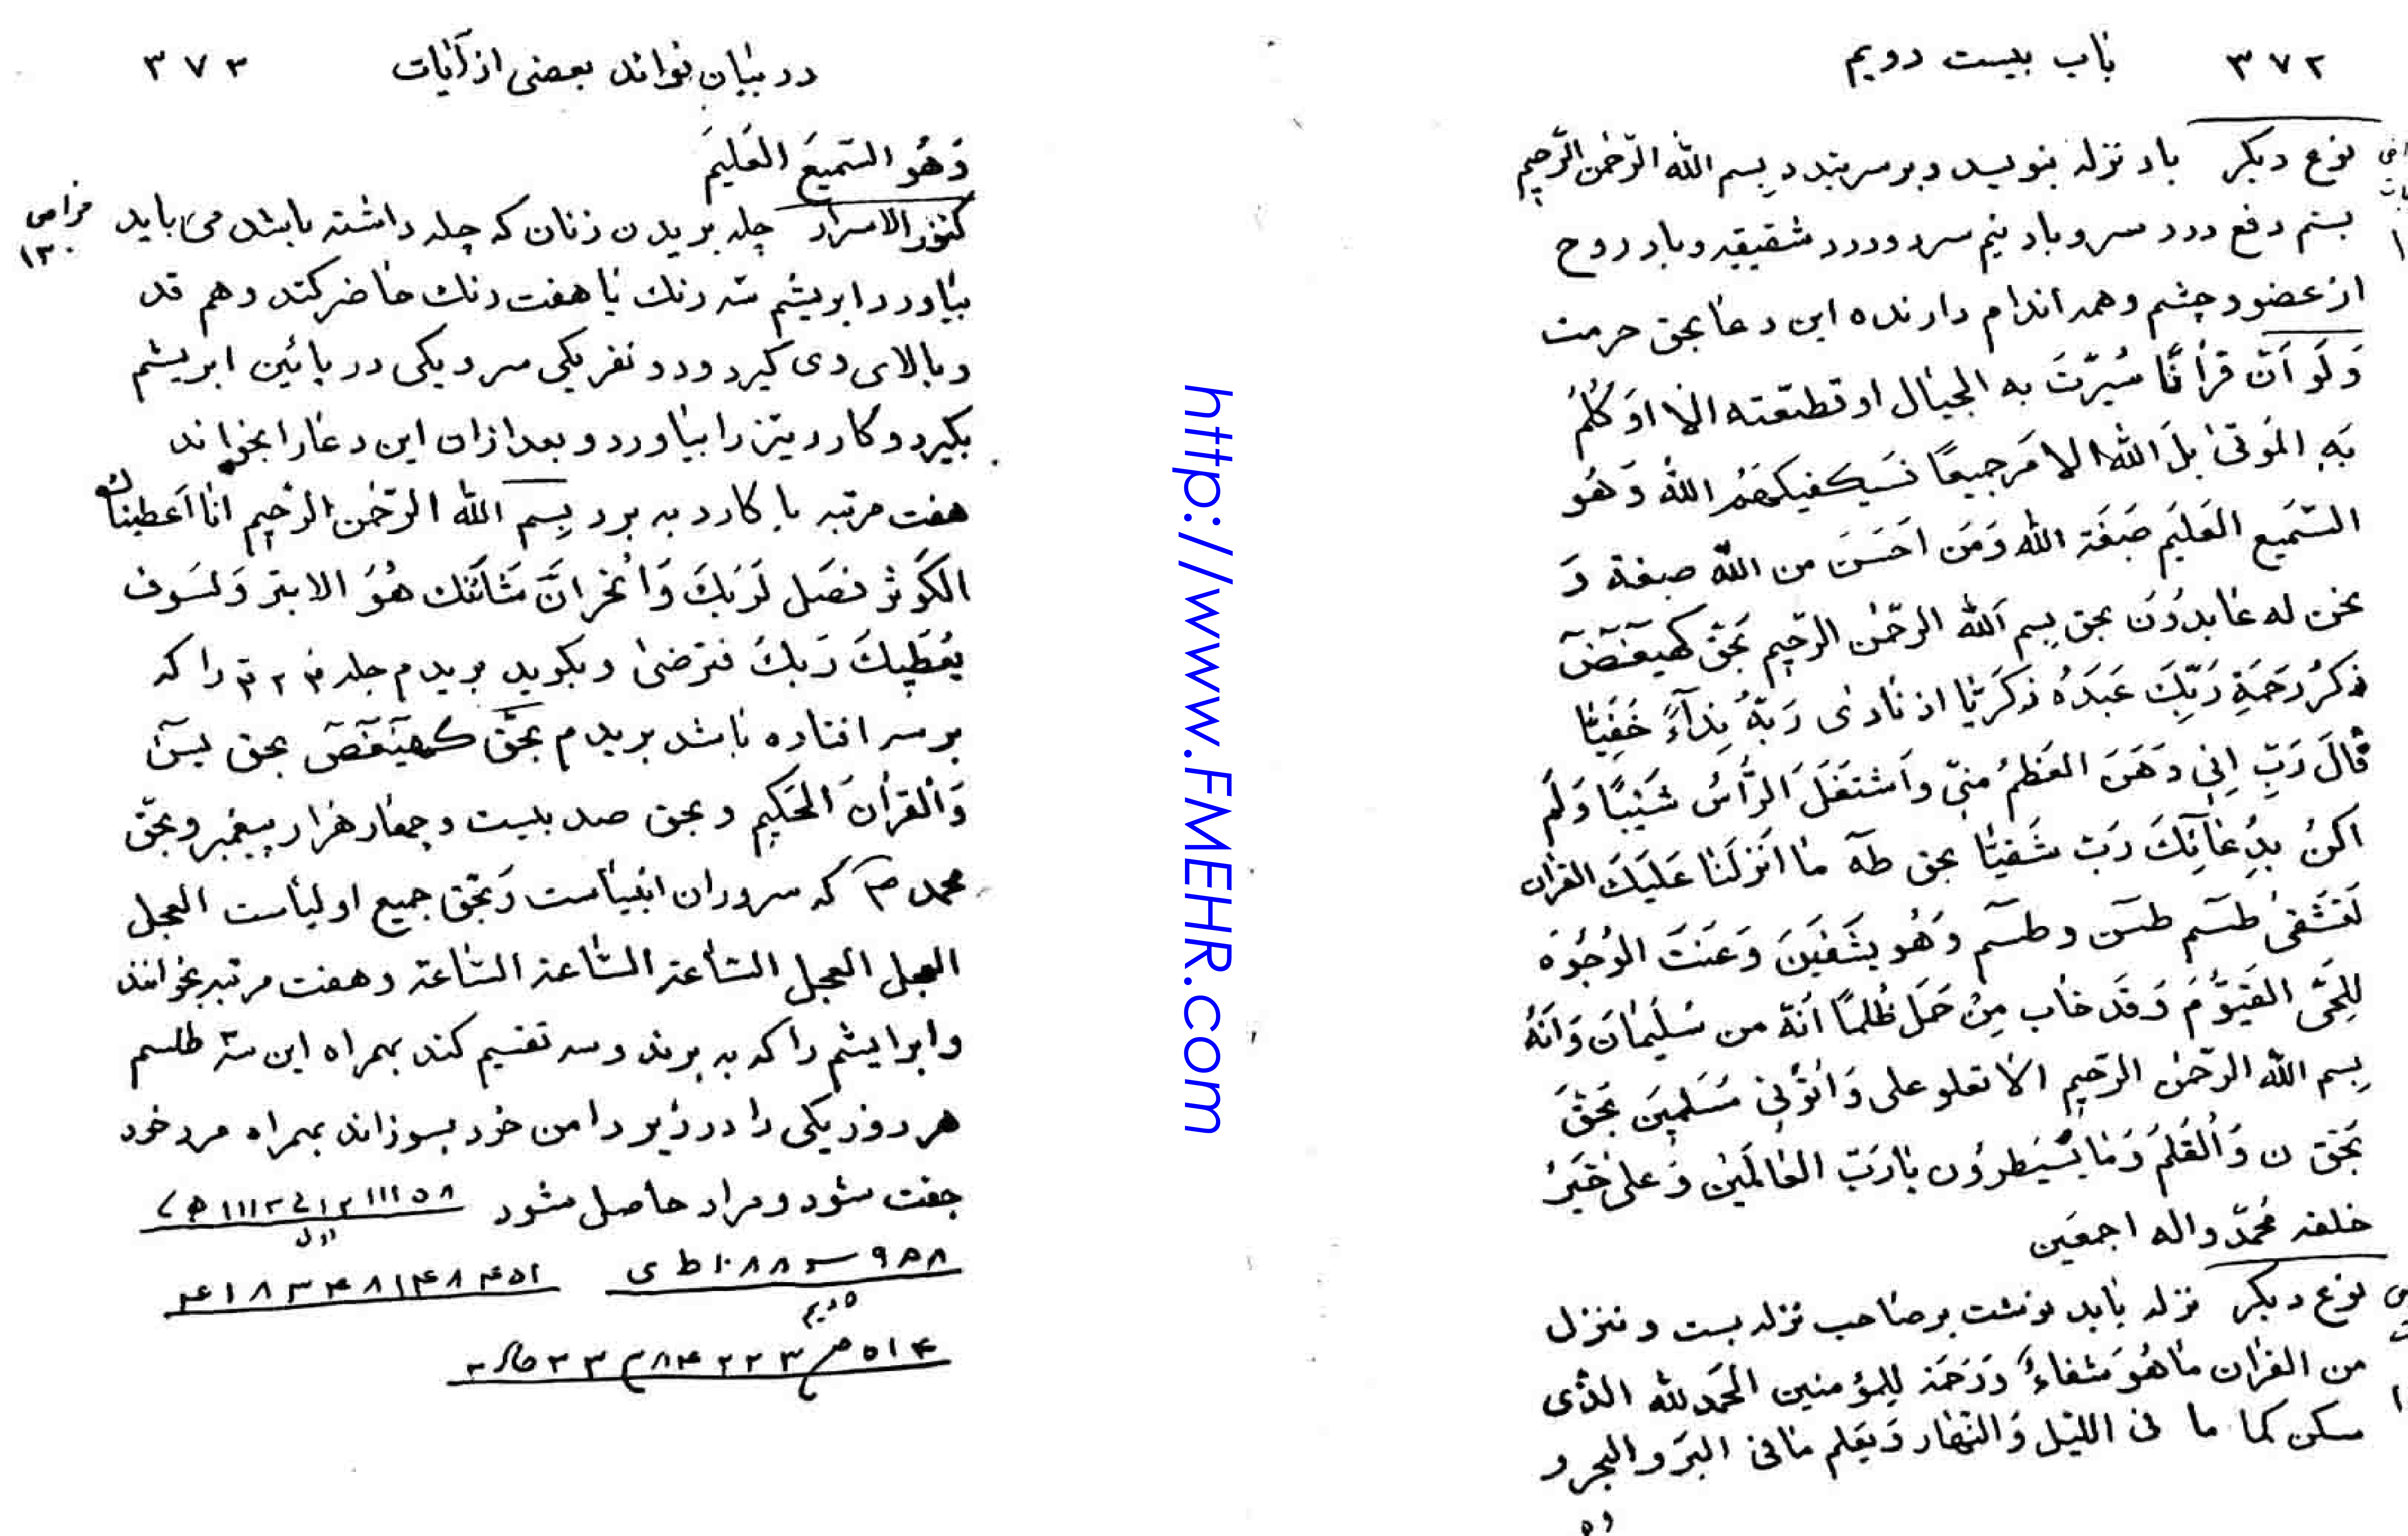 ۳۷۲ باب بیست دویم
نوع دیکر باد نزله بنویسد و بر سر بندد بسم الله الرّحمن الرّحیم
بستم دفع درد سر و باد نیم سر و درد شقیقه و باد روح
از عضو و چشم و همه اندام دارنده این دعا بحق حرمت
وَلَو اَنّ قرأنًا سُیّرَت به الجبال او قطّعته الا اوَ کُلّمُ
بَهِ المَوتیٰ بلَ الله الا مَر جمیعًا فسَیکفیکهُمُ اللهُ وَهُو
السّمَیع العَلیَم صَبغَة الله وَمَن احَسَنَ من اللهّ صبغة وَ
نحن له عابدوُنَ بحق بِسمِ اَلله الرحّمٰن الرحّیم بَحَقّ کهیٓعٓصٓ
ذکرُ رَحمَةِ رَبّکَ عَبدَهُ زکَرّیا اذ نادیٰ رَبّهُ نِدآءً خَفیّا
قالَ رَبّ اِنی وَهَنَ العَظمُ منیّ وَاَشتَعَلَ الرَّأسُ شَیبًا وَلَم
اکنُ بِدُعائِکَ رَبّ شَقیّا بحق طهٓ ما اَنزَلنا عَلَیکَ القران
لَتَشقیٰ طسٓم طسٓ و طسٓم وَهُو یشَفینَ وَعَنَتَ الوُجُوَه
لِلحَیّ القَیّوُمَ وَقَد خابَ مِنُ حَمَل ظُلمًا اَنّه من سُلَیمانَ وَانَهُ
بِسم الله الرحّمٰن الرحّیم الا تعلو علی وَاتوُنی مُسَلِمینَ بحَقّ
بحَقّ ن وَالقَلَمَ وَما یَسَطروُن یا رَبّ العالَمیَن وَ علیٰ خَیرُ
خلقه مُحمّد واله اجمعین
نوع دیکر نزله باید نوشت بر صاحب نزله بست و ننزل
من القرٰان ما هُوَ شفاءُ وَرَحمَة للمؤمنین الحَمد لله الذّی
سکن کما ما فی اللیل وَالنّهار وَیَعَلم ما فی البَرّ و البحر و
۳۷۳ در بیان فوائد بعضی از آیات
وَهُو السّمیعَ العَلیمَ
کنوز الاسرار چله بریدن زنان که چله داشته باشد می باید
خواص
۱۳۰
بیاورد ابریشم سه رنك یا هفت رنك حاضر کند و هم قد
و بالای وی کیرد و دو نفر یکی سر و یکی در پائین ابریشم
بکیرد و کارد تیز را بیاورد و بعد از ان این دعا را بخواند
هفت مرتبه با کارد به برد بِسم الله الرّحمٰن الرّحیم انّا اَعطیناك
الکَوثر فصَل لَربَكَ وَانحَر انَّ شانَئك هُوَ الابتر وَلسَوف
یُعطیكَ رَبكَ فترضیٰ و بکوید بریدم چله را که
بر سر افتاده باشد بریدم بحَقّ کهیٓعٓصٓ بحق یسٓ
وَالقرٰانَ الحَکیم و بحق صد بیست و چهار هزار پیغمبر و بحَقّ
محمد ص که سروران انبیاست وَ بحَقّ جمیع اولیاست العجل
العجل العجل السّاعة السّاعة السّاعة و هفت مرتبه بخوانند
و ابرایشم را که به برند و سه تقسیم کند بهمراه این سه طلسم
هر روز یکی را در زیر دامن خود بسوزاند بهمراه مرد خود
جفت شود و مراد حاصل شود
اول
دویم
http://www.FMEHR.com